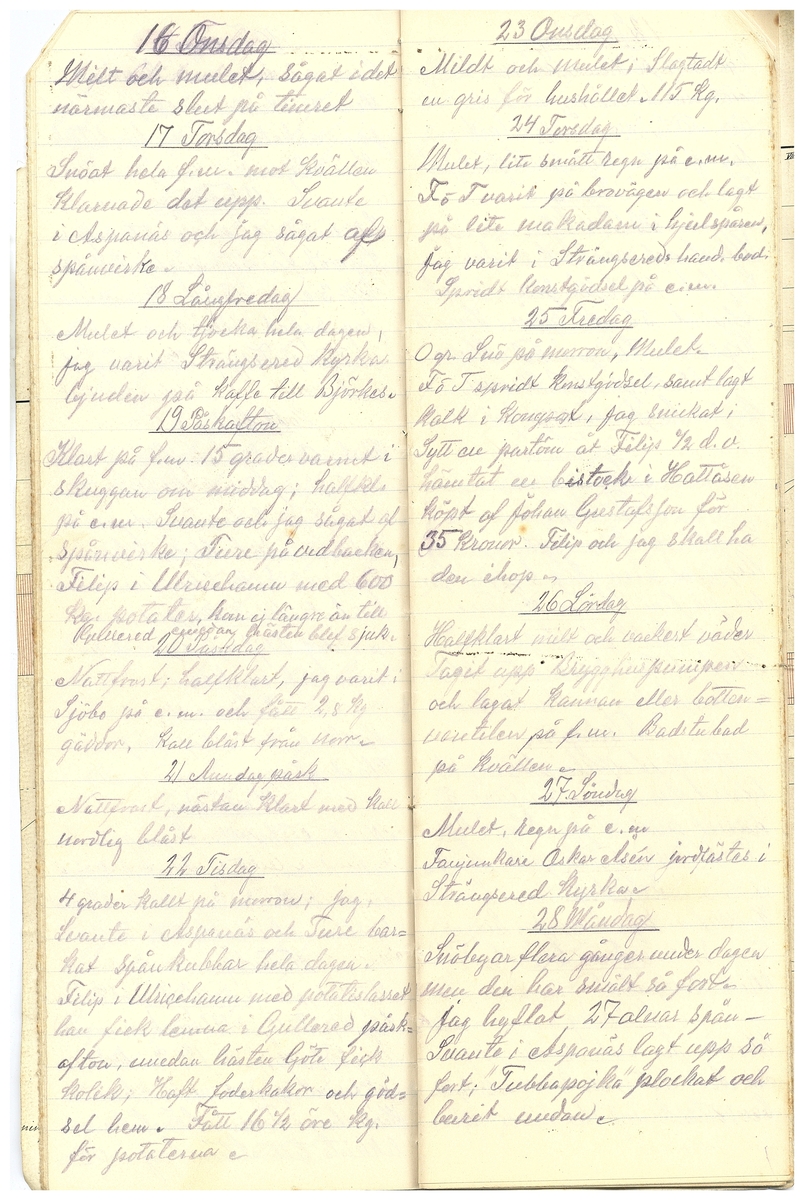 16 Onsdag
Milt och mulet, sågat i det
närmaste slut på timret
17 Torsdag
Snöat hela f.m. mot kvällen
klarnade det upp. Svante
i Aspanäs och jag sågat af
spånvirke.
18 Långfredag
Mulet och tjocka hela dagen,
jag varit Strängsered Kyrka
bjuden på kaffe till Björkes.
19 Påskafton
Klart på f.m. 15 grader varmt i
skuggan om middag; halfkl.
på e.m. Svante och jag sågat af
spånvirke; Ture på vedbacken,
Filip i Ulricehamn med 600
kg. potater, kom ej längre än till
Gullered emedan hästen blef sjuk.
20 Påskdag
Nattfrost; halfklart, jag varit i
Sjöbo på e.m. och fått 2,8 kg
gäddor. Kall blåst från norr.
21 Anndag påsk
Nattfrost, nästan klart med kall
nordlig blåst
22 Tisdag
4 grader kallt på morron; jag,
Svante i Aspanäs och Ture bar=
kat spånkubbar hela dagen.
Filip i Ulricehamn med potatislasset
han fick lemna i Gullered påsk=
afton, emedan hästen Göte fick
kolik; Haft foderkakor och göd=
sel hem. Fått 16 1/2 öre kg.
för potaterna.
23 Onsdag
Mildt och mulet; Slagtadt
en gris för hushållet. 115 Kg.
24 Torsdag
Mulet, lite smått regn på e.m.
F o T varit på brovägen och lagt
på lite makadam i hjulspåren,
jag varit i Strängsereds hand.bod.
Spridt konstgödsel på e.m.
25 Fredag
0 gr. Snö på morron, Mulet.
F o T spridt konstgödsel, samt lagt
kalk i kompost, jag snickat;
Sytt en partöm åt Filip 1/2 d. o.
hämtat en bistock i Hattåsen
köpt af Johan Gustafsson för
35 kronor. Filip och jag skall ha
den ihop.
26 Lördag
Halfklart milt och vackert väder
Tagit upp Brygghuspumpen
och lagat kannan eller botten=
ventilen på f.m. Badstubad
på kvällen.
27 Söndag
Mulet, regn på e.m
Fanjunkare Oskar Asén jordfästes i
Strängsered Kyrka.
28 Måndag
Snöbyar flera gånger under dagen
men den har smält så fort.
Jag hyflat 27 alnar spån -
Svante i Aspanäs lagt upp så
fort; "Tubbapojka" plockat och
burit undan.